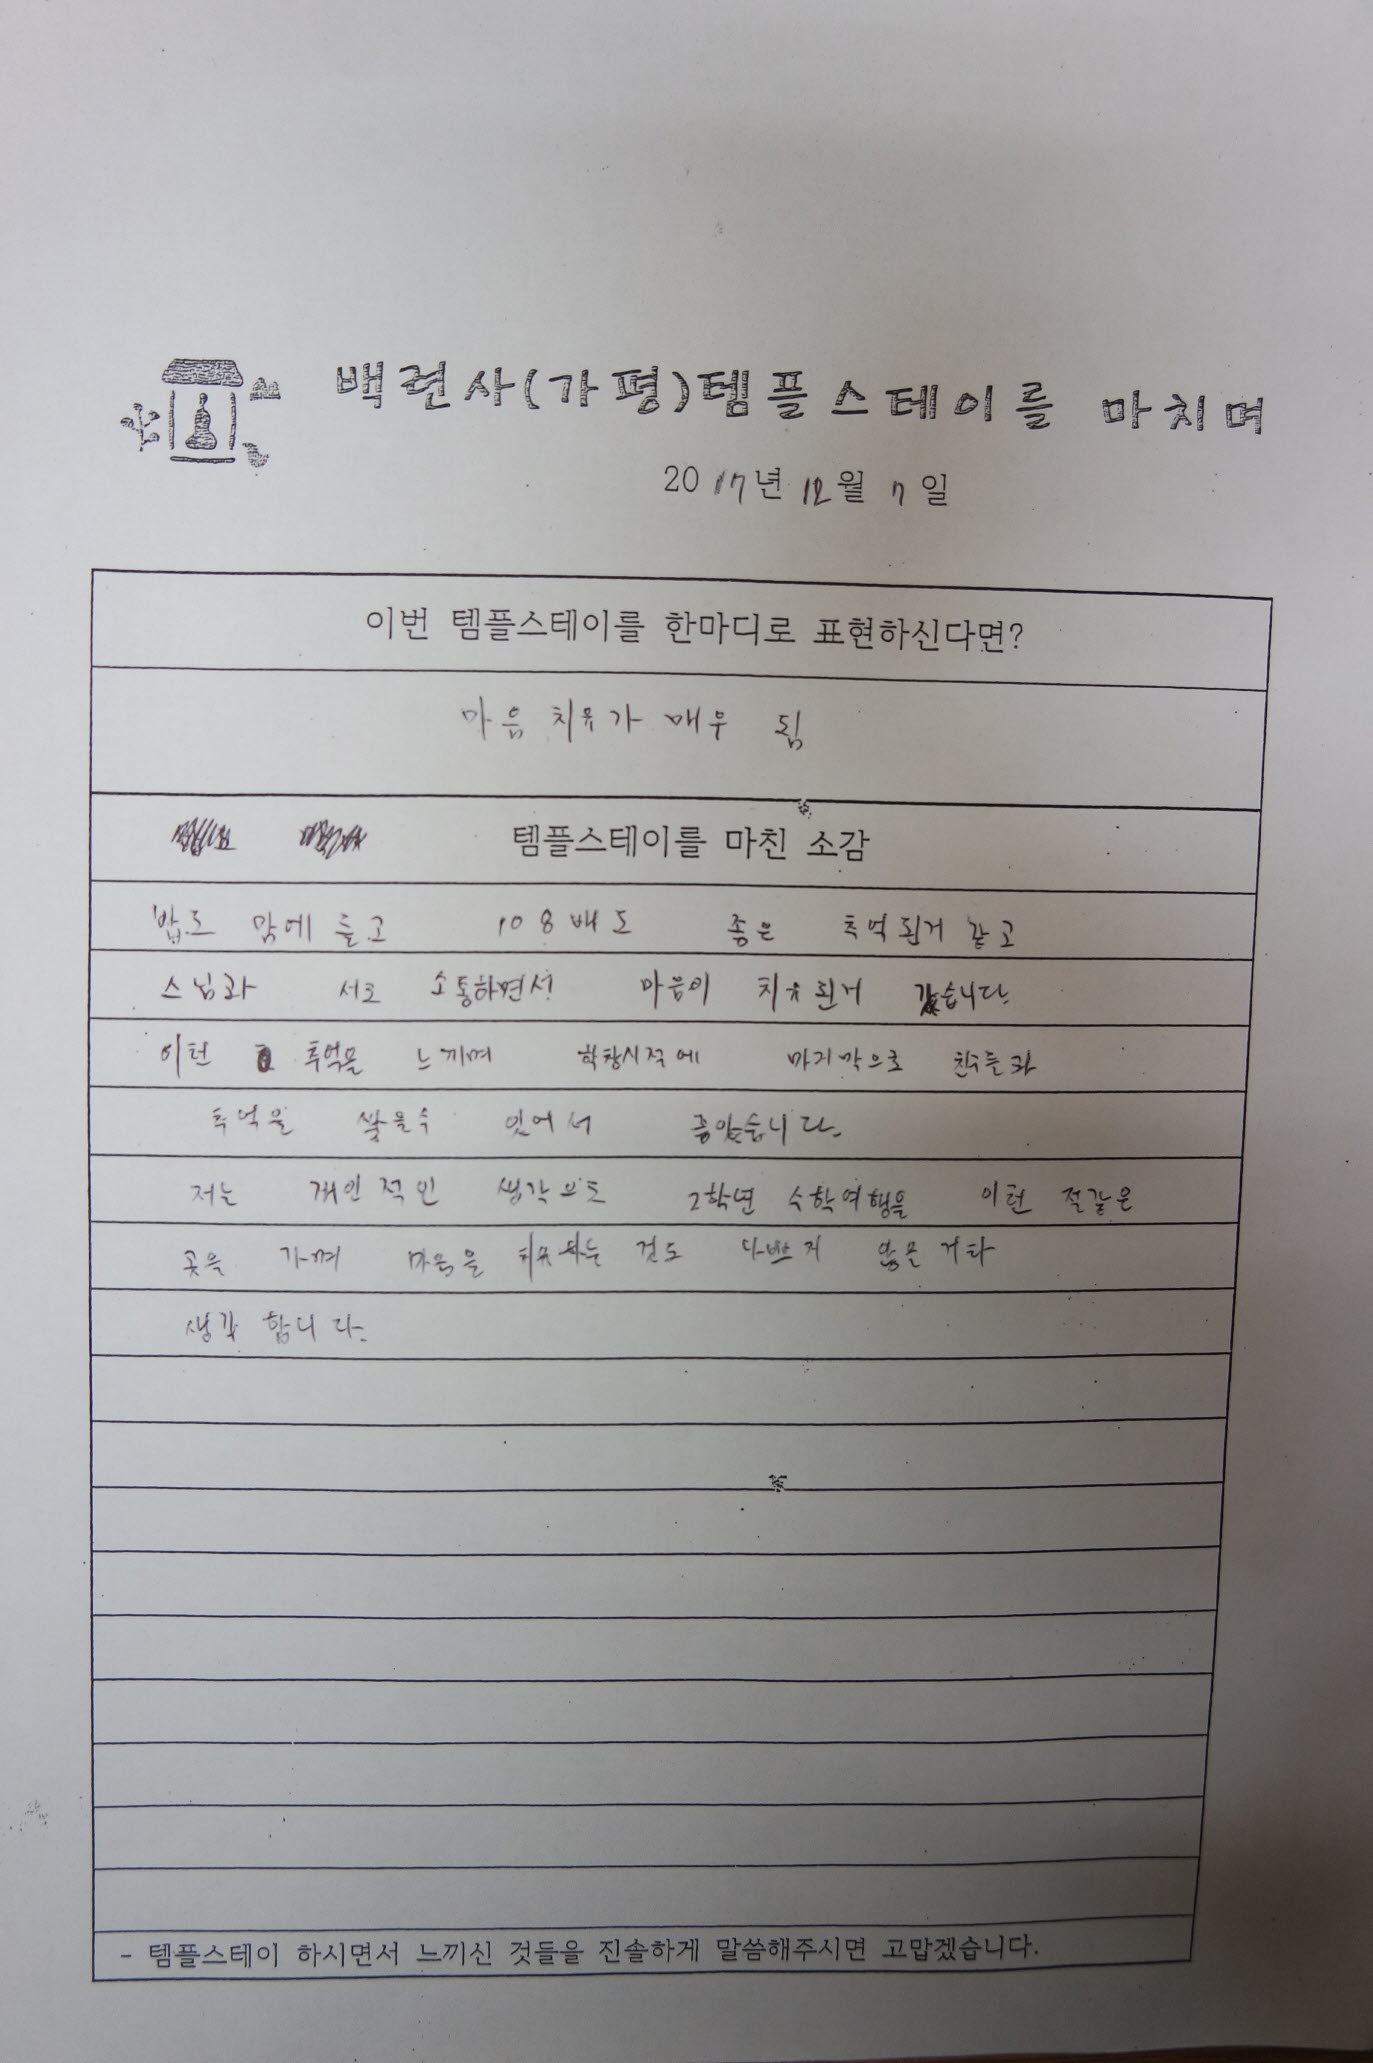 백련사(가평)템플스테이를 마치며
2017년 12월 7일
이번 템플스테이를 한마디로 표현하신다면?
마음 치유가 매우 됨
템플스테이를 마친 소감
밥도 맘에 들고 108배도 좋은 추억된거 같고
스님과 서로 소통하면서 마음이 치유된거 같습니다.
이런 추억을 느끼며 학창시절에 마지막으로 친구들과
추억을 쌓을수 있어서 좋았습니다.
저는 개인적인 생각으로 2학년 수학여행을 이런 절같은
곳을 가며 마음을 치유하는 것도 나쁘지 않은 거라
생각 합니다.
- 템플스테이 하시면서 느끼신 것들을 진솔하게 말씀해주시면 고맙겠습니다.